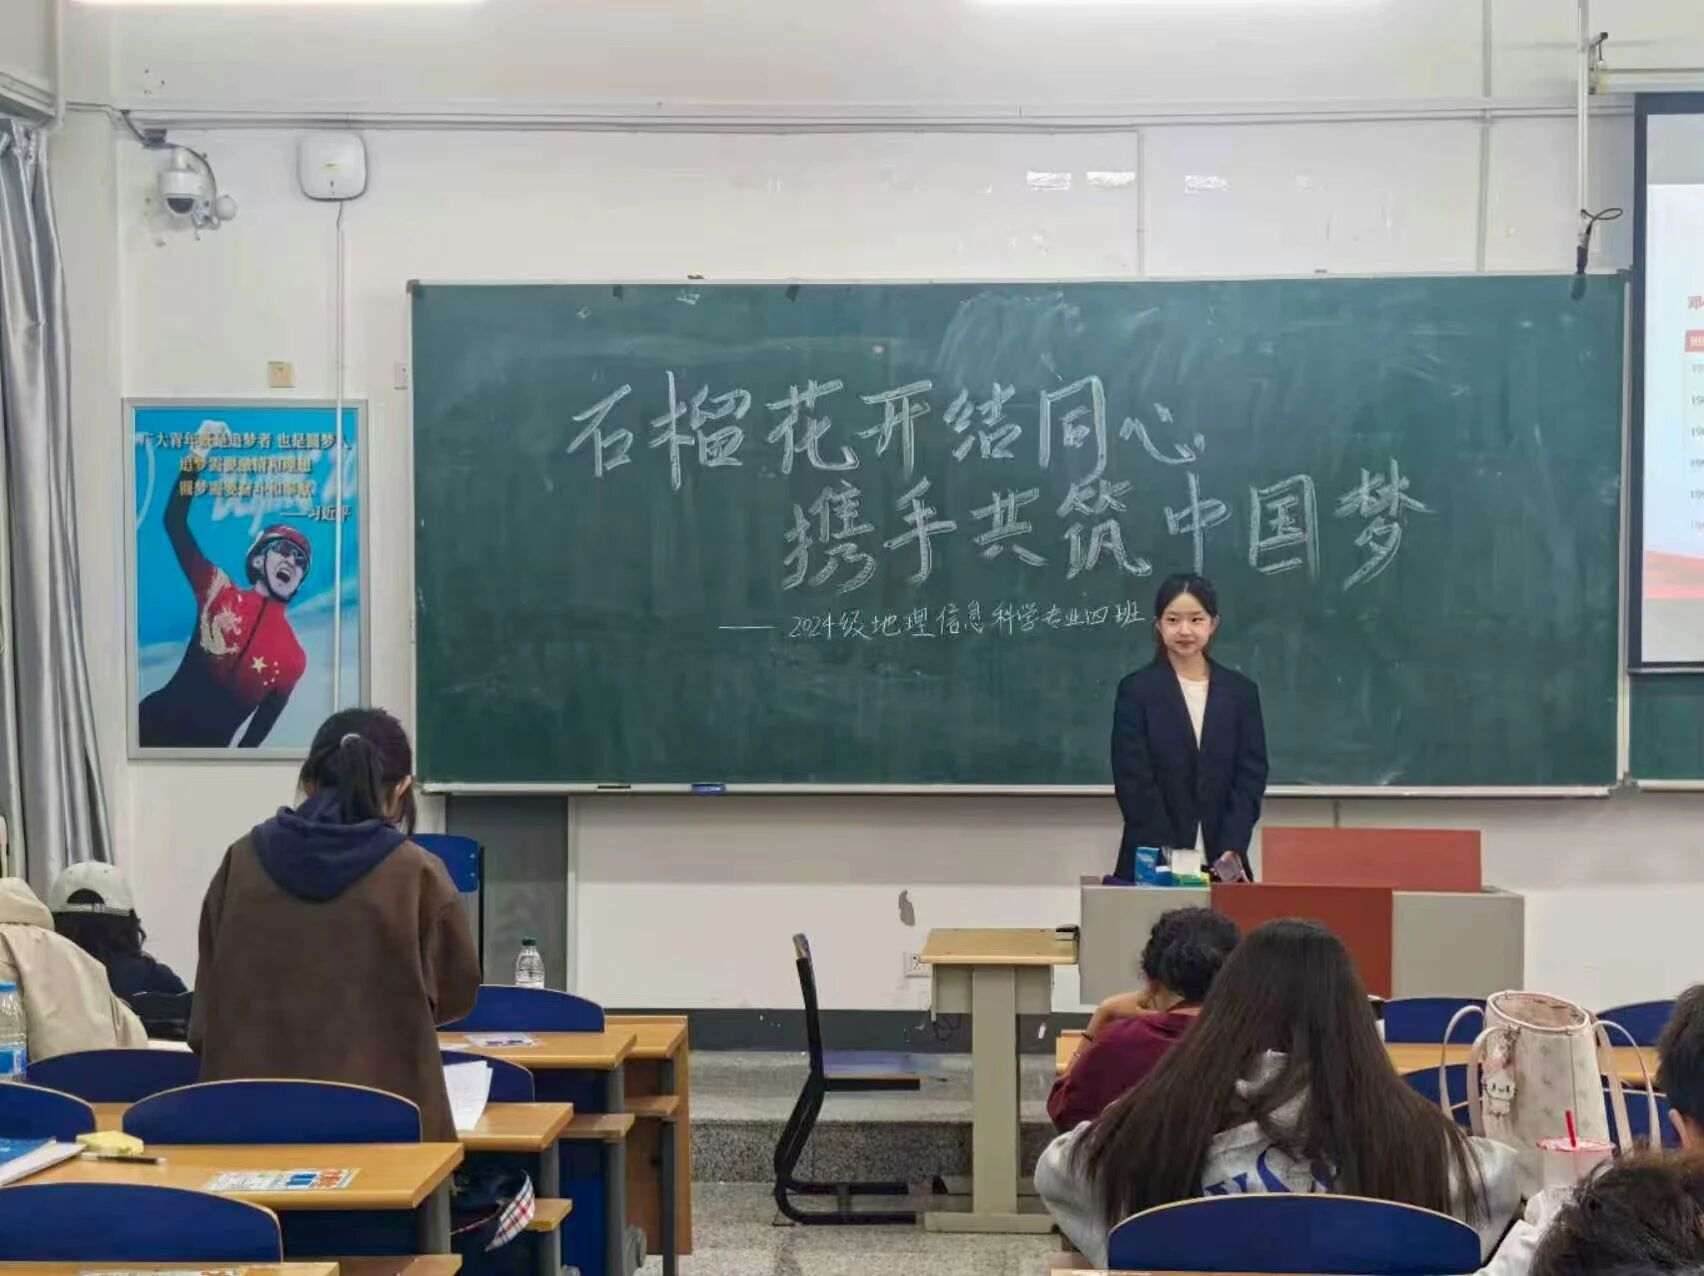 石榴花开结同心
携手共筑中国梦
—— 2024级地理信息科学专业四班
广大青年既是追梦者 也是圆梦人
追梦需要激情和理想
圆梦需要奋斗和奉献
——习近平